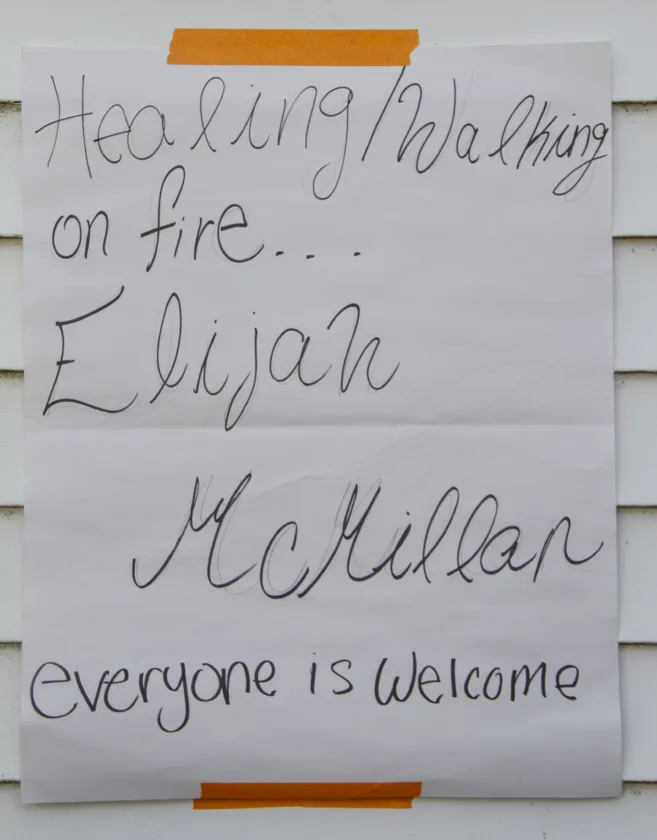 Healing/Walking
on fire...
Elijah
McMillan
everyone is Welcome